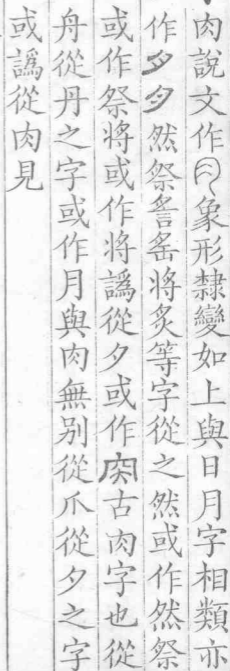 肉說文作⺼象形隸變如上與日月字相類亦
作夕夕然祭詧䍃將炙等字從之然或作然祭
或作祭將或作將譌從夕或作𡧢古肉字也從
舟從丹之字或作月與肉無別從爪從夕之字
或譌從肉見